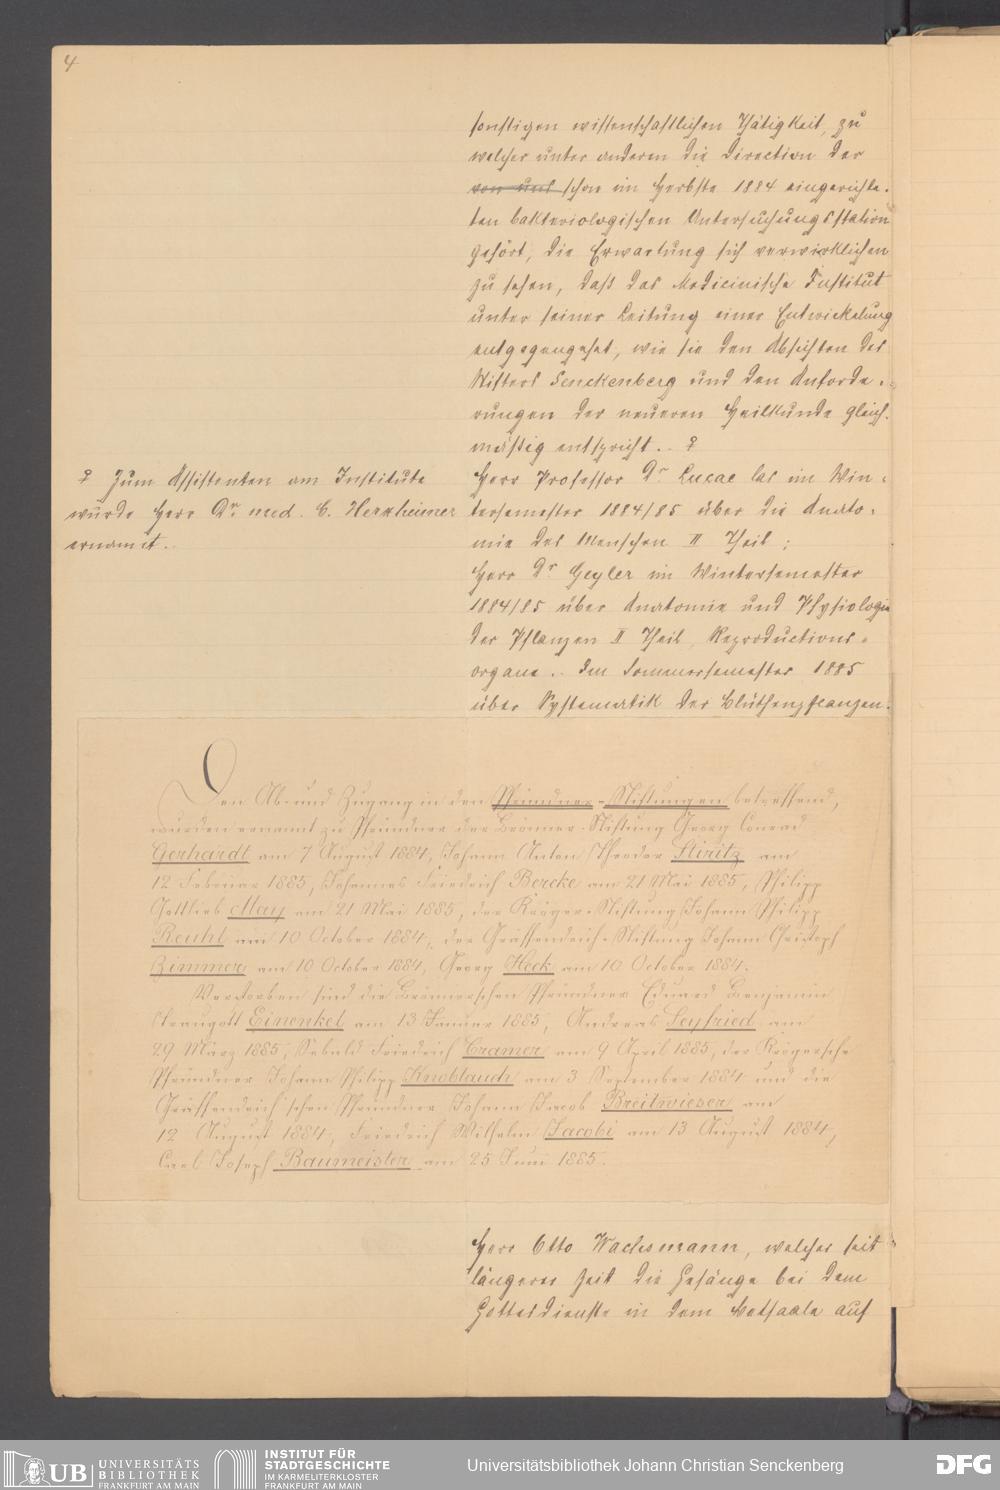 4
sonstigen wissenschaftlichen Thätigkeit, zu
welcher unter anderem die Direction der
von uns schon im Herbste 1884 eingerichte-
ten bakteriologischen Untersuchungsstation
gehört, die Erwartung sich verwirklichen
zu sehen, daß das Medicinische Institut
unter seiner Leitung einer Entwickelung
entgegengehet, wie sie den Absichten des
Stifters Senckenberg und den Anforde-
rungen der neueren Heilkunde gleich-
mäßig entspricht. ♀
♀ Zum Assistenten am Institute
wurde Herr Dr. med. C. Herxheimer
ernannt.
Herr Professor Dr Lucae las im Win-
tersemester 1884/85 über die Anato-
mie des Menschen II Theil;
Herr Dr Geyler im Wintersemester
1884/85 über Anatomie und Physiologie
der Pflanzen II Theil, Reproductions-
organe. Im Sommersemester 1885
über Systematik der Blüthenpflanzen.
Den Ab- und Zugang in den Pfründner-Stiftungen betreffend,
wurden ernannt zu Pfründner der Brönner-Stiftung Georg Conrad
Gerhardt am 7 August 1884, Johann Anton Theodor Stiritz am
12 Februar 1885, Johannes Friedrich Bercke am 21 Mai 1885, Philipp
Gottlieb May am 21 Mai 1885, der Kröger-Stiftung Johann Philipp
Reuhl am 10 October 1884, der Gräffendeich-Stiftung Johann Christoph
Zimmer am 10 October 1884, Georg Heck am 10 October 1884.
Verstorben sind die Brönnerschen Pfründner Eduard Benjamin
Traugott Einenkel am 13 Januar 1885, Andreas Seyfried am
29 März 1885, Sebald Friedrich Cramer am 9 April 1885, der Krögersche
Pfründner Johann Philipp Knoblauch am 3 September 1884 und die
Gräffendeich'schen Pfründner Johann Jacob Breitwieser am
12 August 1884, Friedrich Wilhelm Jacobi am 13 August 1884,
Carl Joseph Baumeister am 25 Juni 1885.
Herr Otto Wachsmann, welcher seit
längerer Zeit die Gesänge bei dem
Gottesdienste in dem Betsaale auf
UB UNIVERSITÄTS
BIBLIOTHEK
FRANKFURT AM MAIN
INSTITUT FÜR
STADTGESCHICHTE
IM KARMELITERKLOSTER
FRANKFURT AM MAIN
Universitätsbibliothek Johann Christian Senckenberg
DFG